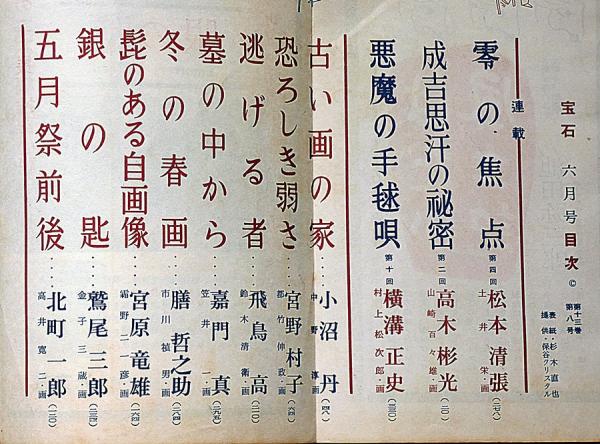 宝石 六月号 目次 ©
第十三巻
第八号
表紙・杉木直也
提供・保谷クリスタル
連載
零の焦点 第四回 松本清張 (二七八)
土井 栄・画
成吉思汗の秘密 第二回 高木彬光 (二〇)
山崎百々雄・画
悪魔の手毬唄 第十回 横溝正史 (三三〇)
村上松次郎・画
古い画の家…小沼 丹 (四八)
中野 淳・画
恐ろしき弱さ…宮野村子 (六四)
都竹伸政・画
逃げる者…飛鳥 高 (二一〇)
鈴木清衛・画
墓の中から…嘉門 真 (二九五)
笠井 一・画
冬の春画…膳 哲之助 (二八四)
市川禎男・画
髭のある自画像…宮原竜雄 (一六四)
霜野二一彦・画
銀の匙…鷲尾三郎 (三一四)
金子三蔵・画
五月祭前後…北町一郎 (一一〇)
高井寛二・画